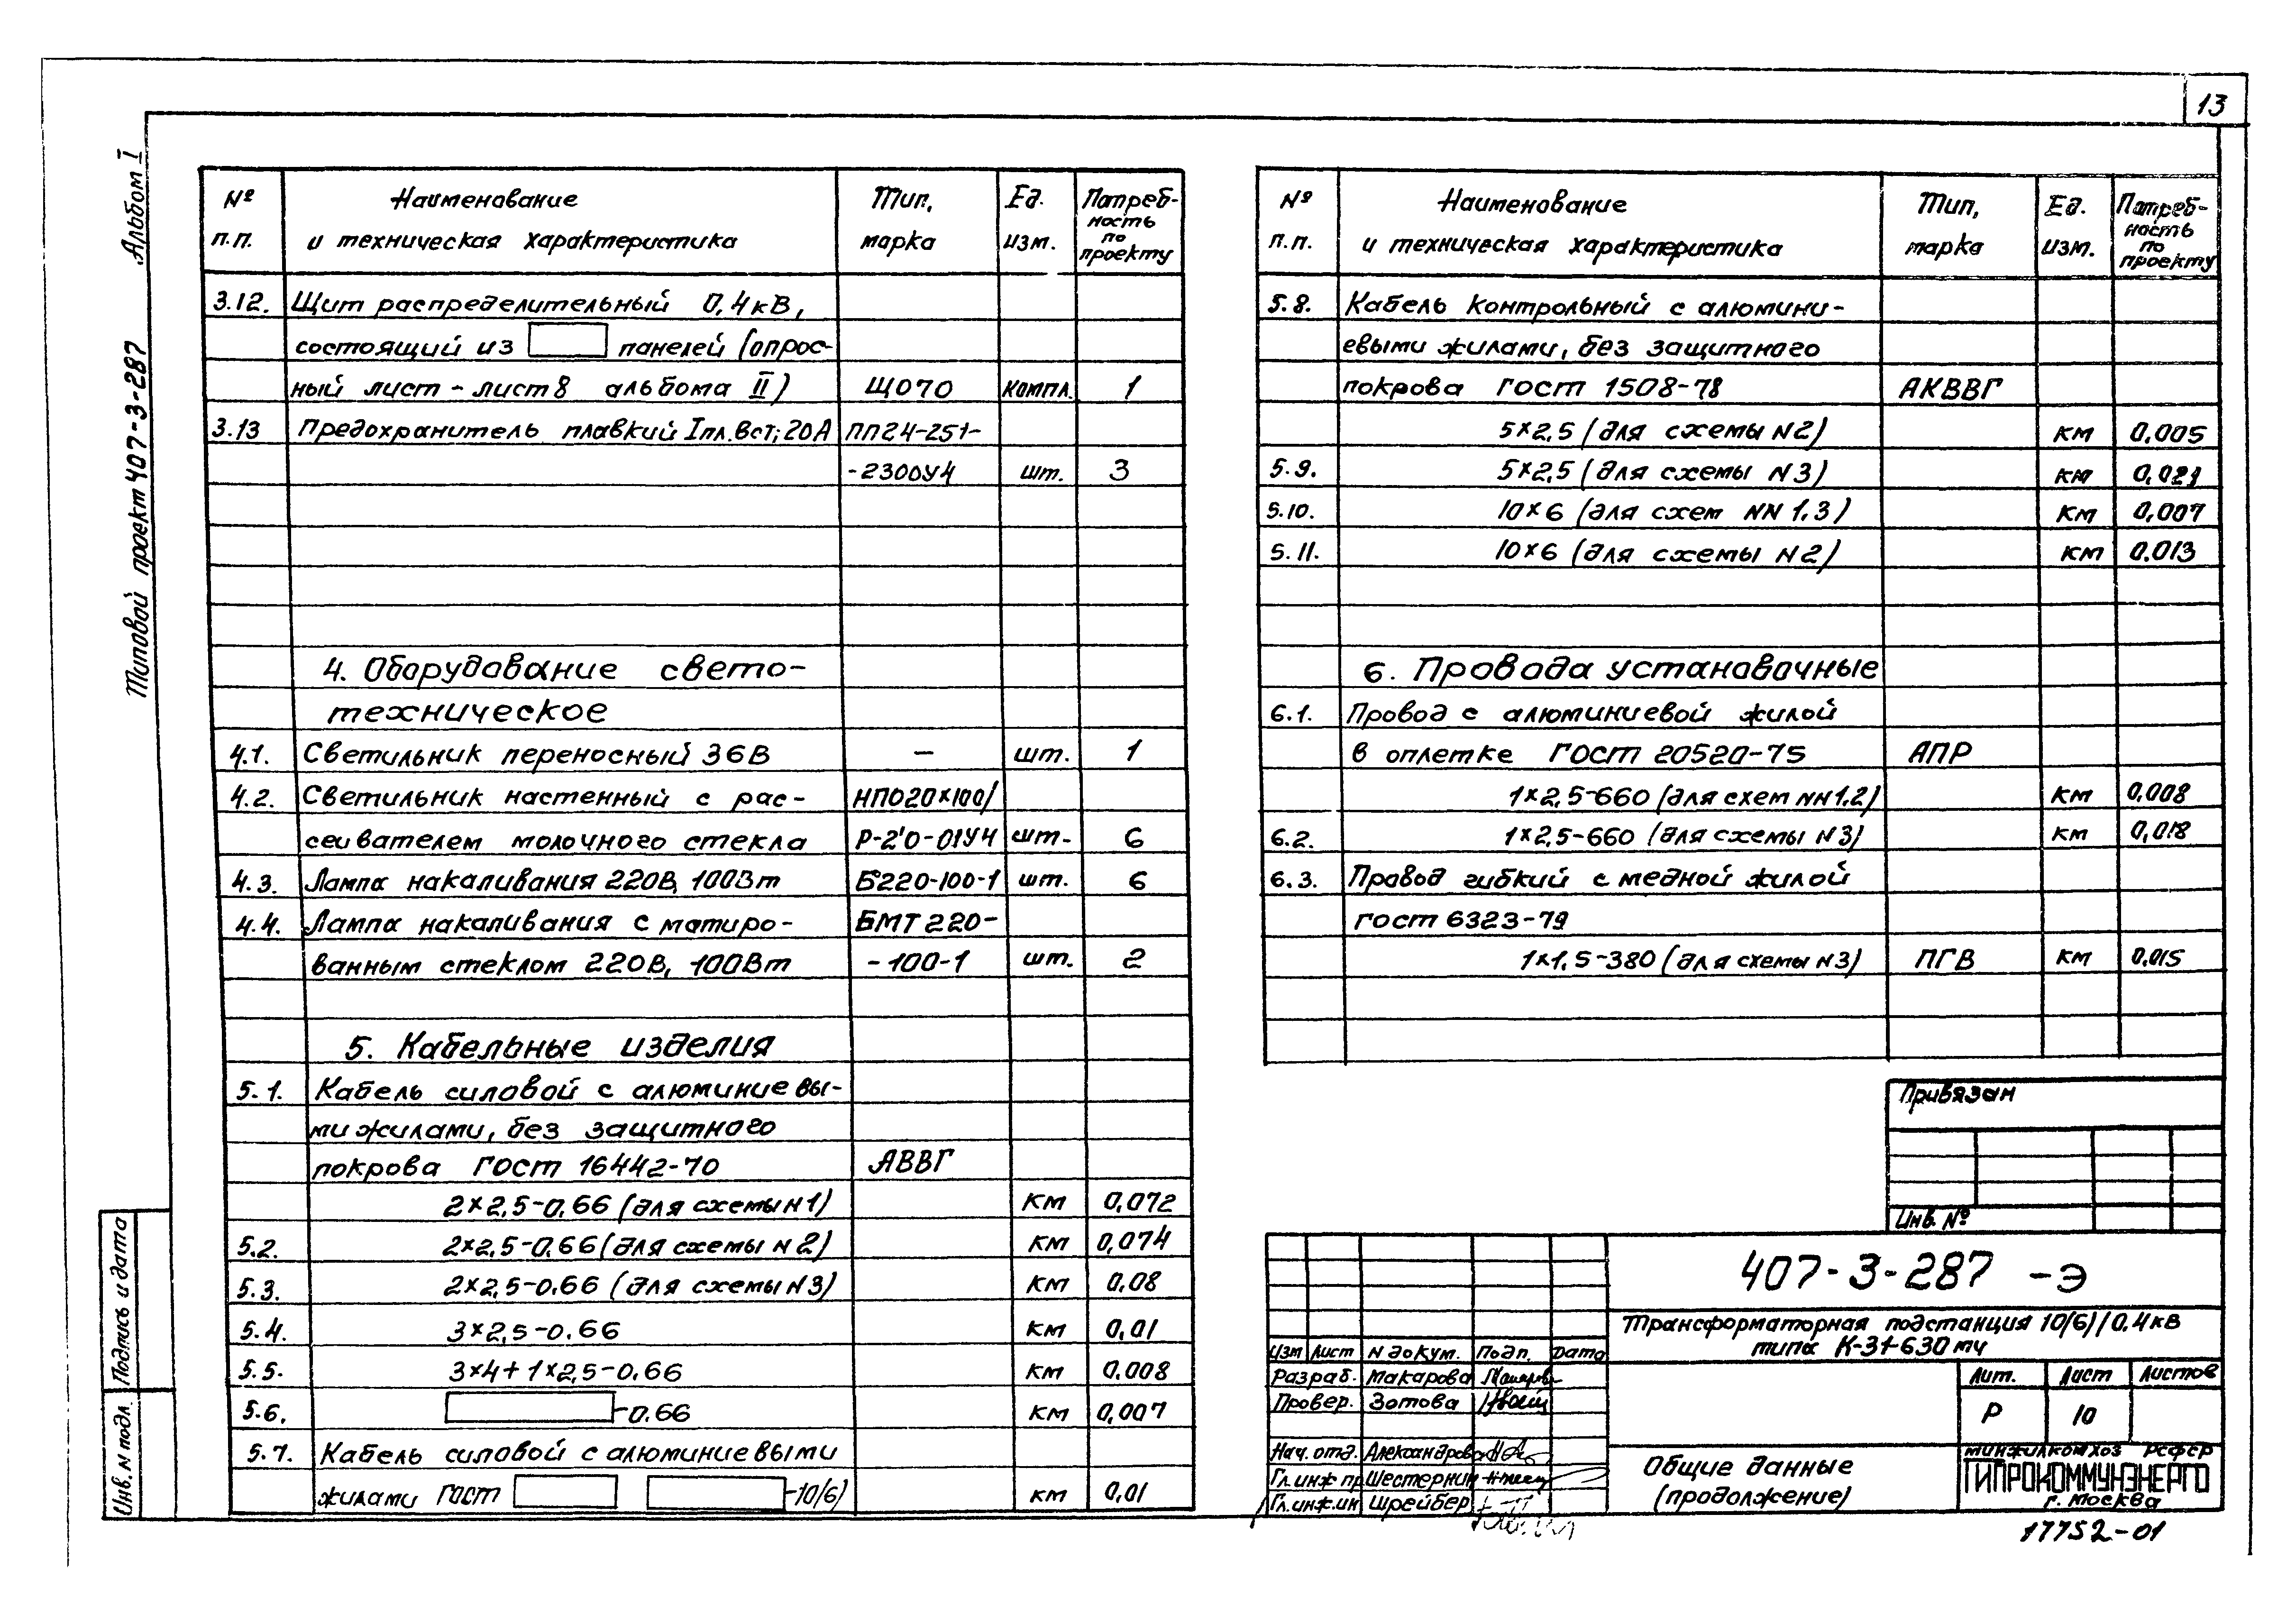 13
Типовой проект 407-3-287 Альбом I
№ п.п. Наименование и техническая характеристика Тип, марка Ед. изм. Потребность по проекту
3.12. Щит распределительный 0,4кВ,
состоящий из панелей (опрос-
ный лист - лист 8 альбома II) ЩО70 компл. 1
3.13 Предохранитель плавкий Iпл.вст; 20А ПП24-251-
-2300У4 шт. 3
4. Оборудование свето-
техническое
4.1. Светильник переносный 36В — шт. 1
4.2. Светильник настенный с рас- НПО20×100/
сеивателем молочного стекла Р-2'0-01У4 шт. 6
4.3. Лампа накаливания 220В, 100Вт Б220-100-1 шт. 6
4.4. Лампа накаливания с матиро- БМТ 220-
ванным стеклом 220В, 100Вт -100-1 шт. 2
5. Кабельные изделия
5.1. Кабель силовой с алюминиевы-
ми жилами, без защитного
покрова ГОСТ 16442-70 АВВГ
2×2,5-0,66 (для схемы N1) км 0,072
5.2. 2×2,5-0,66 (для схемы N2) км 0,074
5.3. 2×2,5-0,66 (для схемы N3) км 0,08
5.4. 3×2,5-0,66 км 0,01
5.5. 3×4+1×2,5-0,66 км 0,008
5.6. -0,66 км 0,007
5.7. Кабель силовой с алюминиевыми
жилами ГОСТ -10(6) км 0,01
№ п.п. Наименование и техническая характеристика Тип, марка Ед. изм. Потребность по проекту
5.8. Кабель контрольный с алюмини-
евыми жилами, без защитного
покрова ГОСТ 1508-78 АКВВГ
5×2,5 (для схемы N2) км 0,005
5.9. 5×2,5 (для схемы N3) км 0,021
5.10. 10×6 (для схем NN 1,3) км 0,007
5.11. 10×6 (для схемы N2) км 0,013
6. Провода установочные
6.1. Провод с алюминиевой жилой
в оплетке ГОСТ 20520-75 АПР
1×2,5-660 (для схем NN 1,2) км 0,008
6.2. 1×2,5-660 (для схемы N3) км 0,018
6.3. Провод гибкий с медной жилой
ГОСТ 6323-79
1×1,5-380 (для схемы N3) ПГВ км 0,015
Привязан
Инв. №
407-3-287 -Э
Трансформаторная подстанция 10(6)/0,4кВ
типа К-31-630 м4
Изм Лист N докум. Подп. Дата
Разраб. Макарова
Провер. Зотова
Нач. отд. Александрова
Гл. инж пр. Шестернин
Гл. инж. ин Шрейбер
Лит. Лист Листов
Р 10
Общие данные
(продолжение)
Минжилкомхоз РСФСР
ГИПРОКОММУНЭНЕРГО
г. Москва
17752-01
Инв. N подл. Подпись и дата